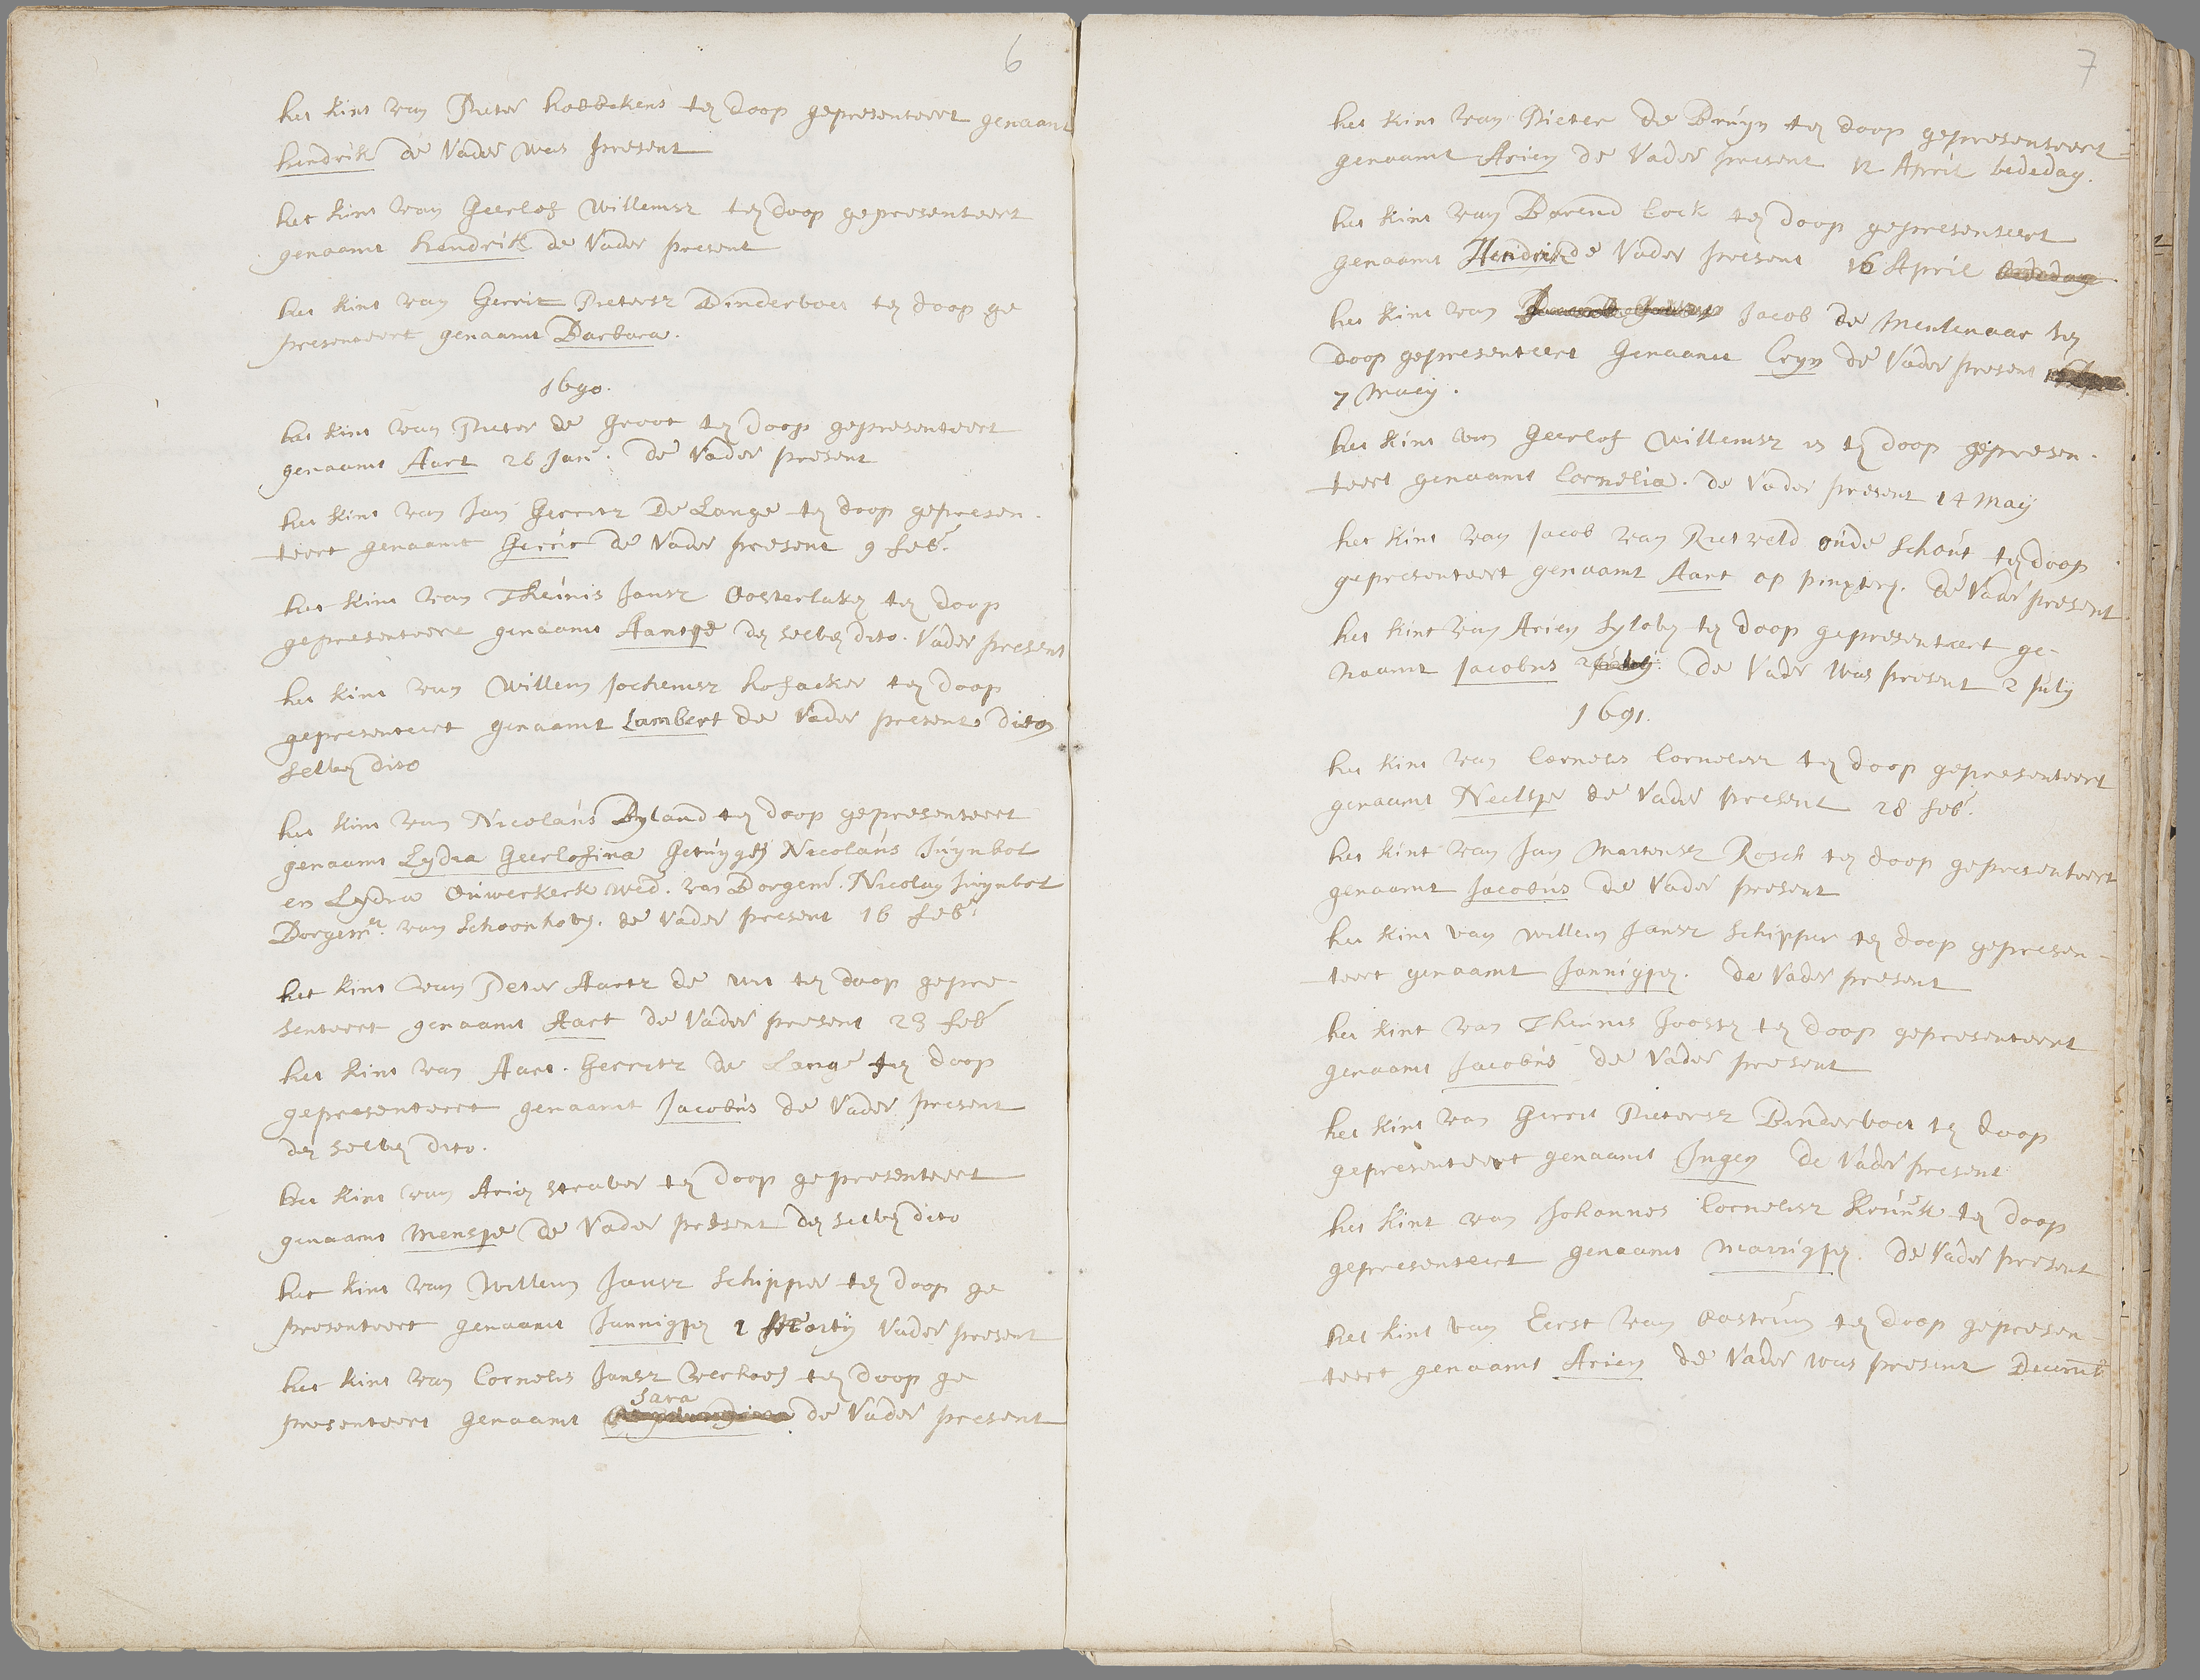 6
het kint van Pieter hobbekens ten doop gepresenteert genaamt
hendrik de Vader was present
het kint van Geerlof Willemsz ten doop gepresenteert
genaamt hendrik de Vader present
het kint van Gerrit Pietersz Binderboet ten doop ge
presenteert genaamt Barbara.
1690.
het kint van Pieter de Groot ten doop gepresenteert
genaamt Aart 28 Jan. De Vader present
het kint van Jan Gerritz De Lange ten doop gepresen.
teert genaamt Gerrit de Vader present 9 feb.
het kint van Theunis Jansz Oosterlaken ten doop
gepresenteert genaamt Aantge den selven dito. Vader present
het kint van Willem Jochemsz hofacker ten doop
gepresenteert genaamt Lambert de Vader present den
selven dito
het kint van Nicolaus Byland ten doop gepresenteert
genaamt Lydia Geerlofina Getuygen Nicolaus Juynbol
en Lydia Ouwerkerk wed. van Borgem. Nicolay Juynbol
Borgemr. van Schoonhoven. de Vader present 16 feb.
het kint van Peter Aartz de wit ten doop gepre-
senteert genaamt Aart de Vader present 23 feb
het kint van Aart. Gerritz de Lange ten doop
gepresenteert genaamt Jacobus de Vader present
den selven dito.
het kint van Arien straver ten doop gepresenteert
genaamt Mensje de Vader present den selven dito
het kint van Willem Jansz Schipper ten doop ge
presenteert genaamt Jannigjen 1 Martij Vader present
het kint van Cornelis Jansz Verhoef ten doop ge
Sara
presenteert genaamt de Vader present
7
het kint van Pieter de Bruyn ten doop gepresenteert
genaamt Arien de Vader present 12 April bededag.
het kint van Barend Cock ten doop gepresenteert
genaamt Hendrik de Vader present 16 April bededag.
het kint van Jacob de Mentenaar ten
doop gepresenteert Genaamt Cryn de Vader present
7 Maey.
het kint van Geerlof Willemsz is ten doop gepresen.
teert genaamt Cornelia. de Vader present 14 May
het kint van Jacob van Rietveld oude Schout ten doop
gepresenteert genaamt Aart op pinxteren. de Vaar present
het kint van Arien Syloben ten doop gepresenteert ge-
naamt Jacobus 2 July. De Vader was present 2 July
1691.
het kint van Cornelis Cornelisz ten doop gepresenteert
genaamt Neeltje de Vader present 28 feb.
het kint van Jan Martensz Rosch ten doop gepresenteert
genaamt Jacobus de Vader present
het kint van Willem Jansz Schipper ten doop gepresen-
teert genaamt Jannigjen. de Vader present
het kint van Theunis Joosten ten doop gepresenteert
genaamt Jacobus de Vader present
het kint van Gerrit Pietersz Binderboet ten doop
gepresenteert genaamt Ingen de Vader present
het kint van Johannes Cornelisz Kruuk ten doop
gepresenteert genaamt Marrigjen. de Vader present
het kint van Eerst van Oostrum ten doop gepresen-
teert genaamt Arien de Vader was present Decemb